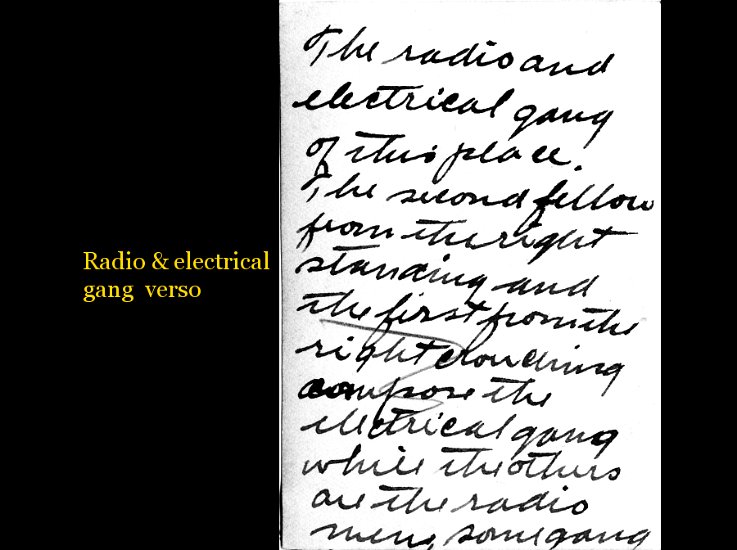 Radio & electrical
gang verso
The radio and
electrical gang
of this place.
The second fellow
from the right
standing and
the first from the
right crouching
compose the
electrical gang
while the others
are the radio
men, some gang